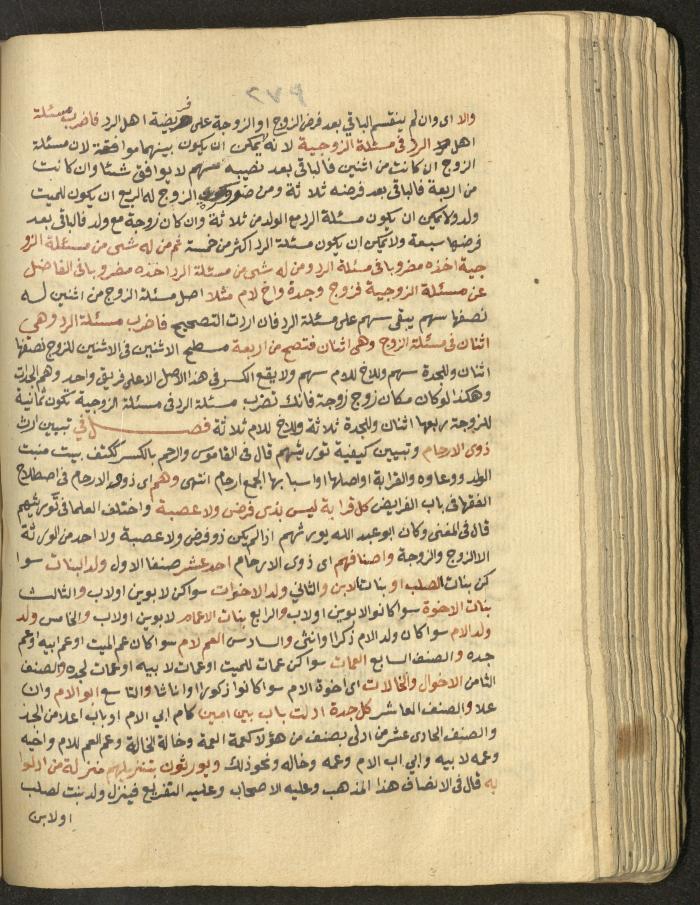 ٢٧٩
والا اى وان لم ينقسم الباقي بعد فرض الزوج او الزوجة على فريضة اهل الرد فاضرب مسئلة
اهل الرد فى مسئلة الزوجية لانه لا يمكن ان يكون بينهما موافقة لان مسئلة
الزوج ان كانت من اثنين فالباقى بعد نصيبه سهم لا يوافق شئا وان كانت
من اربعة فالباقى بعد فرضه ثلاثة ومن ضرورة الزوج له الربع ان يكون للميت
ولد ولا يمكن ان يكون مسئلة الرد مع الولد من ثلاثة وان كان زوجة مع ولد فالباقى بعد
فرضها سبعة ولا يمكن ان يكون مسئلة الرد اكثر من خمسة ثم من له شى من مسئلة الزو
جية اخذه مضروبا فى مسئلة الرد ومن له شى من مسئلة الرد اخذه مضروبا فى الفاضل
عن مسئلة الزوجية فزوج وجدة واخ لام مثلا اصل مسئلة الزوج من اثنين له
نصفها سهم يبقى سهم على مسئلة الرد فان اردت التصحيح فاضرب مسئلة الرد وهى
اثنان فى مسئلة الزوج وهى اثنان فتصح من اربعة مسطح الاثنين فى الاثنين للزوج نصفها
اثنان وللجدة سهم وللاخ للام سهم ولا يقع الكسر فى هذا الاصل الا على فريق واحد وهم الجدات
وهكذا لو كان مكان زوج زوجة فانك تضرب مسئلة الرد فى مسئلة الزوجية تكون ثمانية
للزوجة ربعها اثنان وللجدة ثلاثة وللاخ للام ثلاثة فصل في تبيين ارث
ذوى الارحام وتبيين كيفية توريثهم قال فى القاموس والرحم بالكسر ككتف بيت منبت
الولد ووعاوه والقرابة او اصلها او اسبابها الجمع ارحام انتهى وهم اى ذوو الارحام فى اصطلاح
الفقها فى باب الفرايض كل قرابة ليس بذى فرض ولا عصبة واختلف العلما فى توريثهم
قال فى المغنى وكان ابو عبد الله يورثهم اذا لم يكن ذو فرض ولا عصبة ولا احد من الورثة
الا الزوج والزوجة واصنافهم اى ذوى الارحام احد عشر صنفا الاول ولد البنات سوا
كن بنات الصلب او بنات الابن والثاني ولد الاخوات سوا كن لابوين او لاب والثالث
بنات الاخوة سوا كانوا لابوين او لاب والرابع بنات الاعمام لابوين او لاب والخامس ولد
ولد الام سوا كان ولد الام ذكرا او انثى والسادس العم لام سوا كان عم الميت او عم ابيه او عم
جده والصنف السابع العمات سوا كن عمات للميت او عمات لابيه او عمات لجده والصنف
الثامن الاخوال والخالات اى اخوة الام سوا كانوا ذكورا او اناثا والتاسع ابو الام وان
علا والصنف العاشر كل جدة ادلت باب بين امين كام ابي الام او باب اعلا من الجد
والصنف الحادى عشر من ادلى بصنف من هولا كعمة العمة وخالة الخالة وعم العم للام واخيه
وعمه لابيه وابي اب الام وعمه وخاله ونحو ذلك ويورثون بتنزيلهم منزلة من ادلوا
به قال فى الانصاف هذا المذهب وعليه الاصحاب وعليه التفريع فينزل ولد بنت لصلب
او لابن